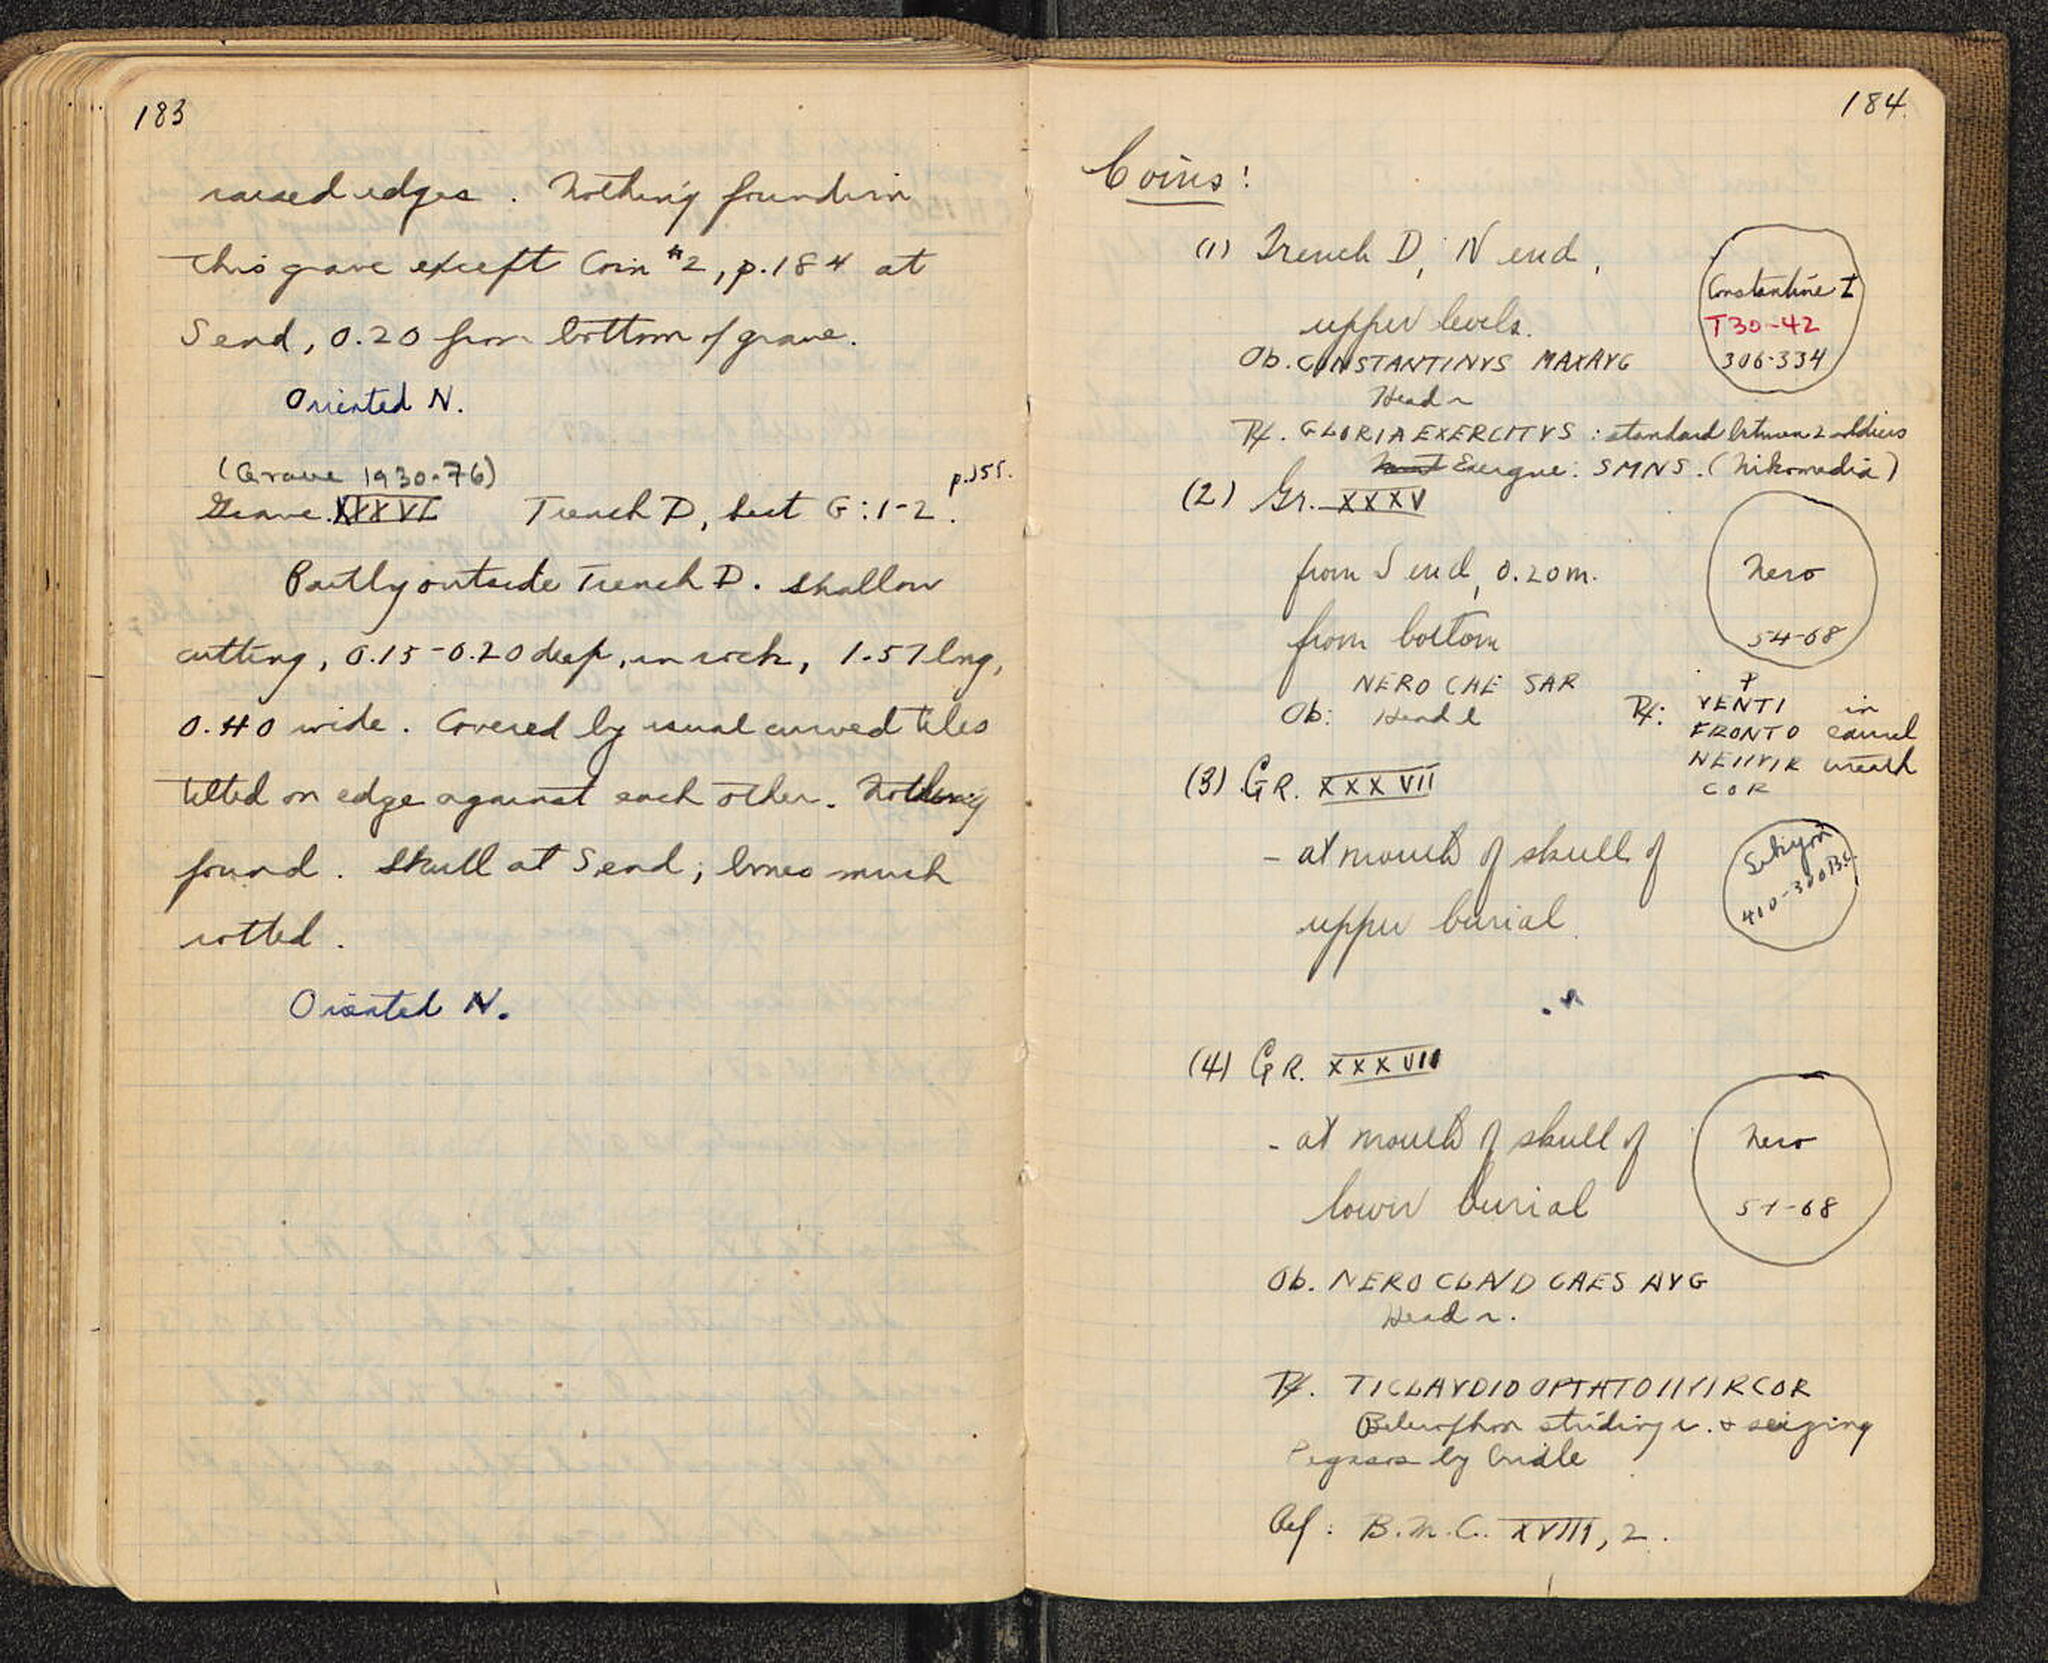 183
raised edges. Nothing found in
this grave except Coin #2, p.184 at
S end, 0.20 from bottom of grave.
Oriented N.
(Grave 1930-76)
Grave XXXVI Trench D, sect G:1-2. p.155.
Partly outside Trench D. Shallow
cutting, 0.15-0.20 deep, in rock, 1.57 long,
0.40 wide. Covered by usual curved tiles
tilted on edge against each other. Nothing
found. Skull at S end; bones much
rotted.
Oriented N.
184.
Coins:
(1) Trench D, N end,
upper levels.
Constantine I
T30-42
306-334
Ob. CONSTANTINVS MAXAVG
Head r
Rx. GLORIA EXERCITVS: standard between 2 soldiers
Exergue: SMNS. (Nikomedia)
(2) Gr. XXXV
from S end, 0.20m.
from bottom
Nero
54-68
NERO CAE SAR
Ob: Head l
Rx: P
VENTI in
FRONTO laurel
NEIIVIR wreath
COR
(3) GR. XXXVII
- at mouth of skull of
upper burial.
Sikyon
410-300 B.C.
(4) GR. XXXVII
- at mouth of skull of
lower burial
Nero
54-68
Ob. NERO CLAVD CAES AVG
Head r.
Rx. TICLAVDIOOPTATOIIVIRCOR
Bellerophon striding r. & seizing
Pegasos by bridle
Ref: B.M.C. XVIII, 2.